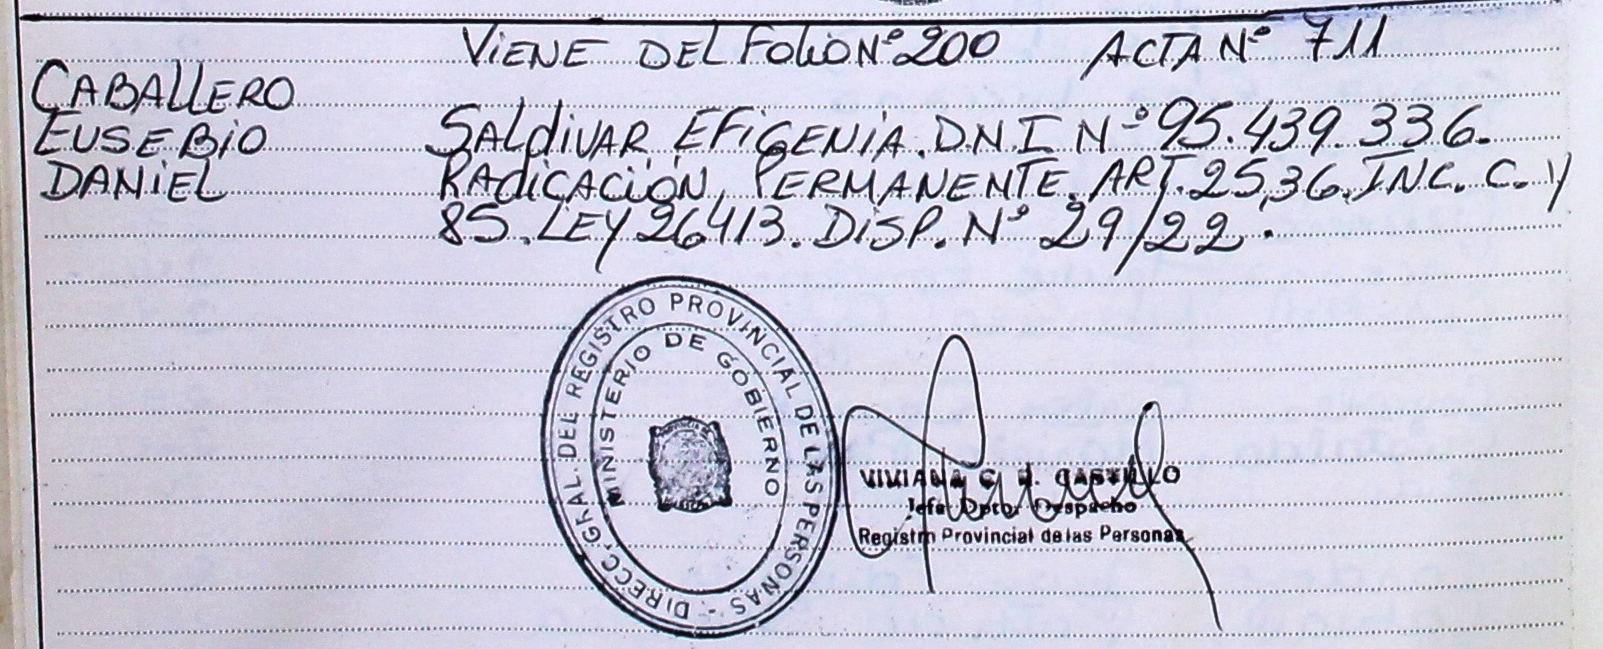 VIENE DEL FOLIO Nº 200 ACTA Nº 711
CABALLERO
EUSEBIO
DANIEL
SALDIVAR EFIGENIA. D.N.I Nº 95.439.336.
RADICACIÓN, PERMANENTE. ART. 25,36. INC. C. Y
85. LEY 26413. DISP. Nº 29/22.
DIRECC. GRAL. DEL REGISTRO PROVINCIAL DE LAS PERSONAS -
MINISTERIO DE GOBIERNO
VIVIANA C. CASTILLO
Jefa Dpto. Despacho
Registro Provincial de las Personas